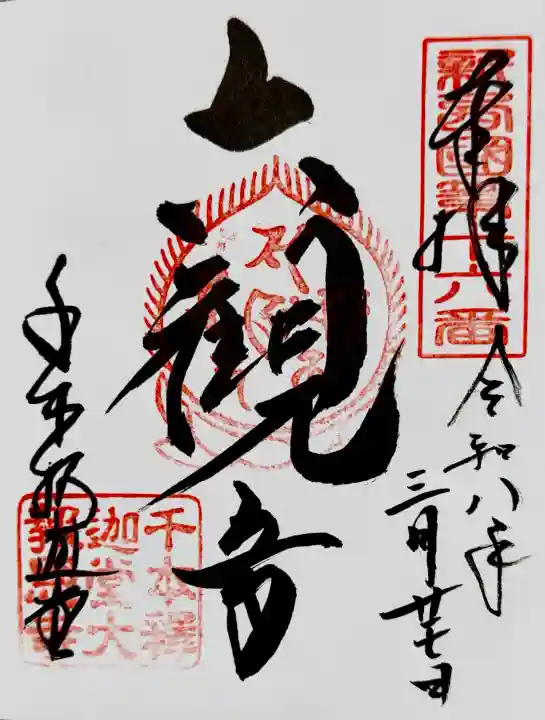 奉拝
新西国第十六番
令和八年
三月廿七日
六観音
千本釈迦堂
千本釋
迦堂大
報恩寺